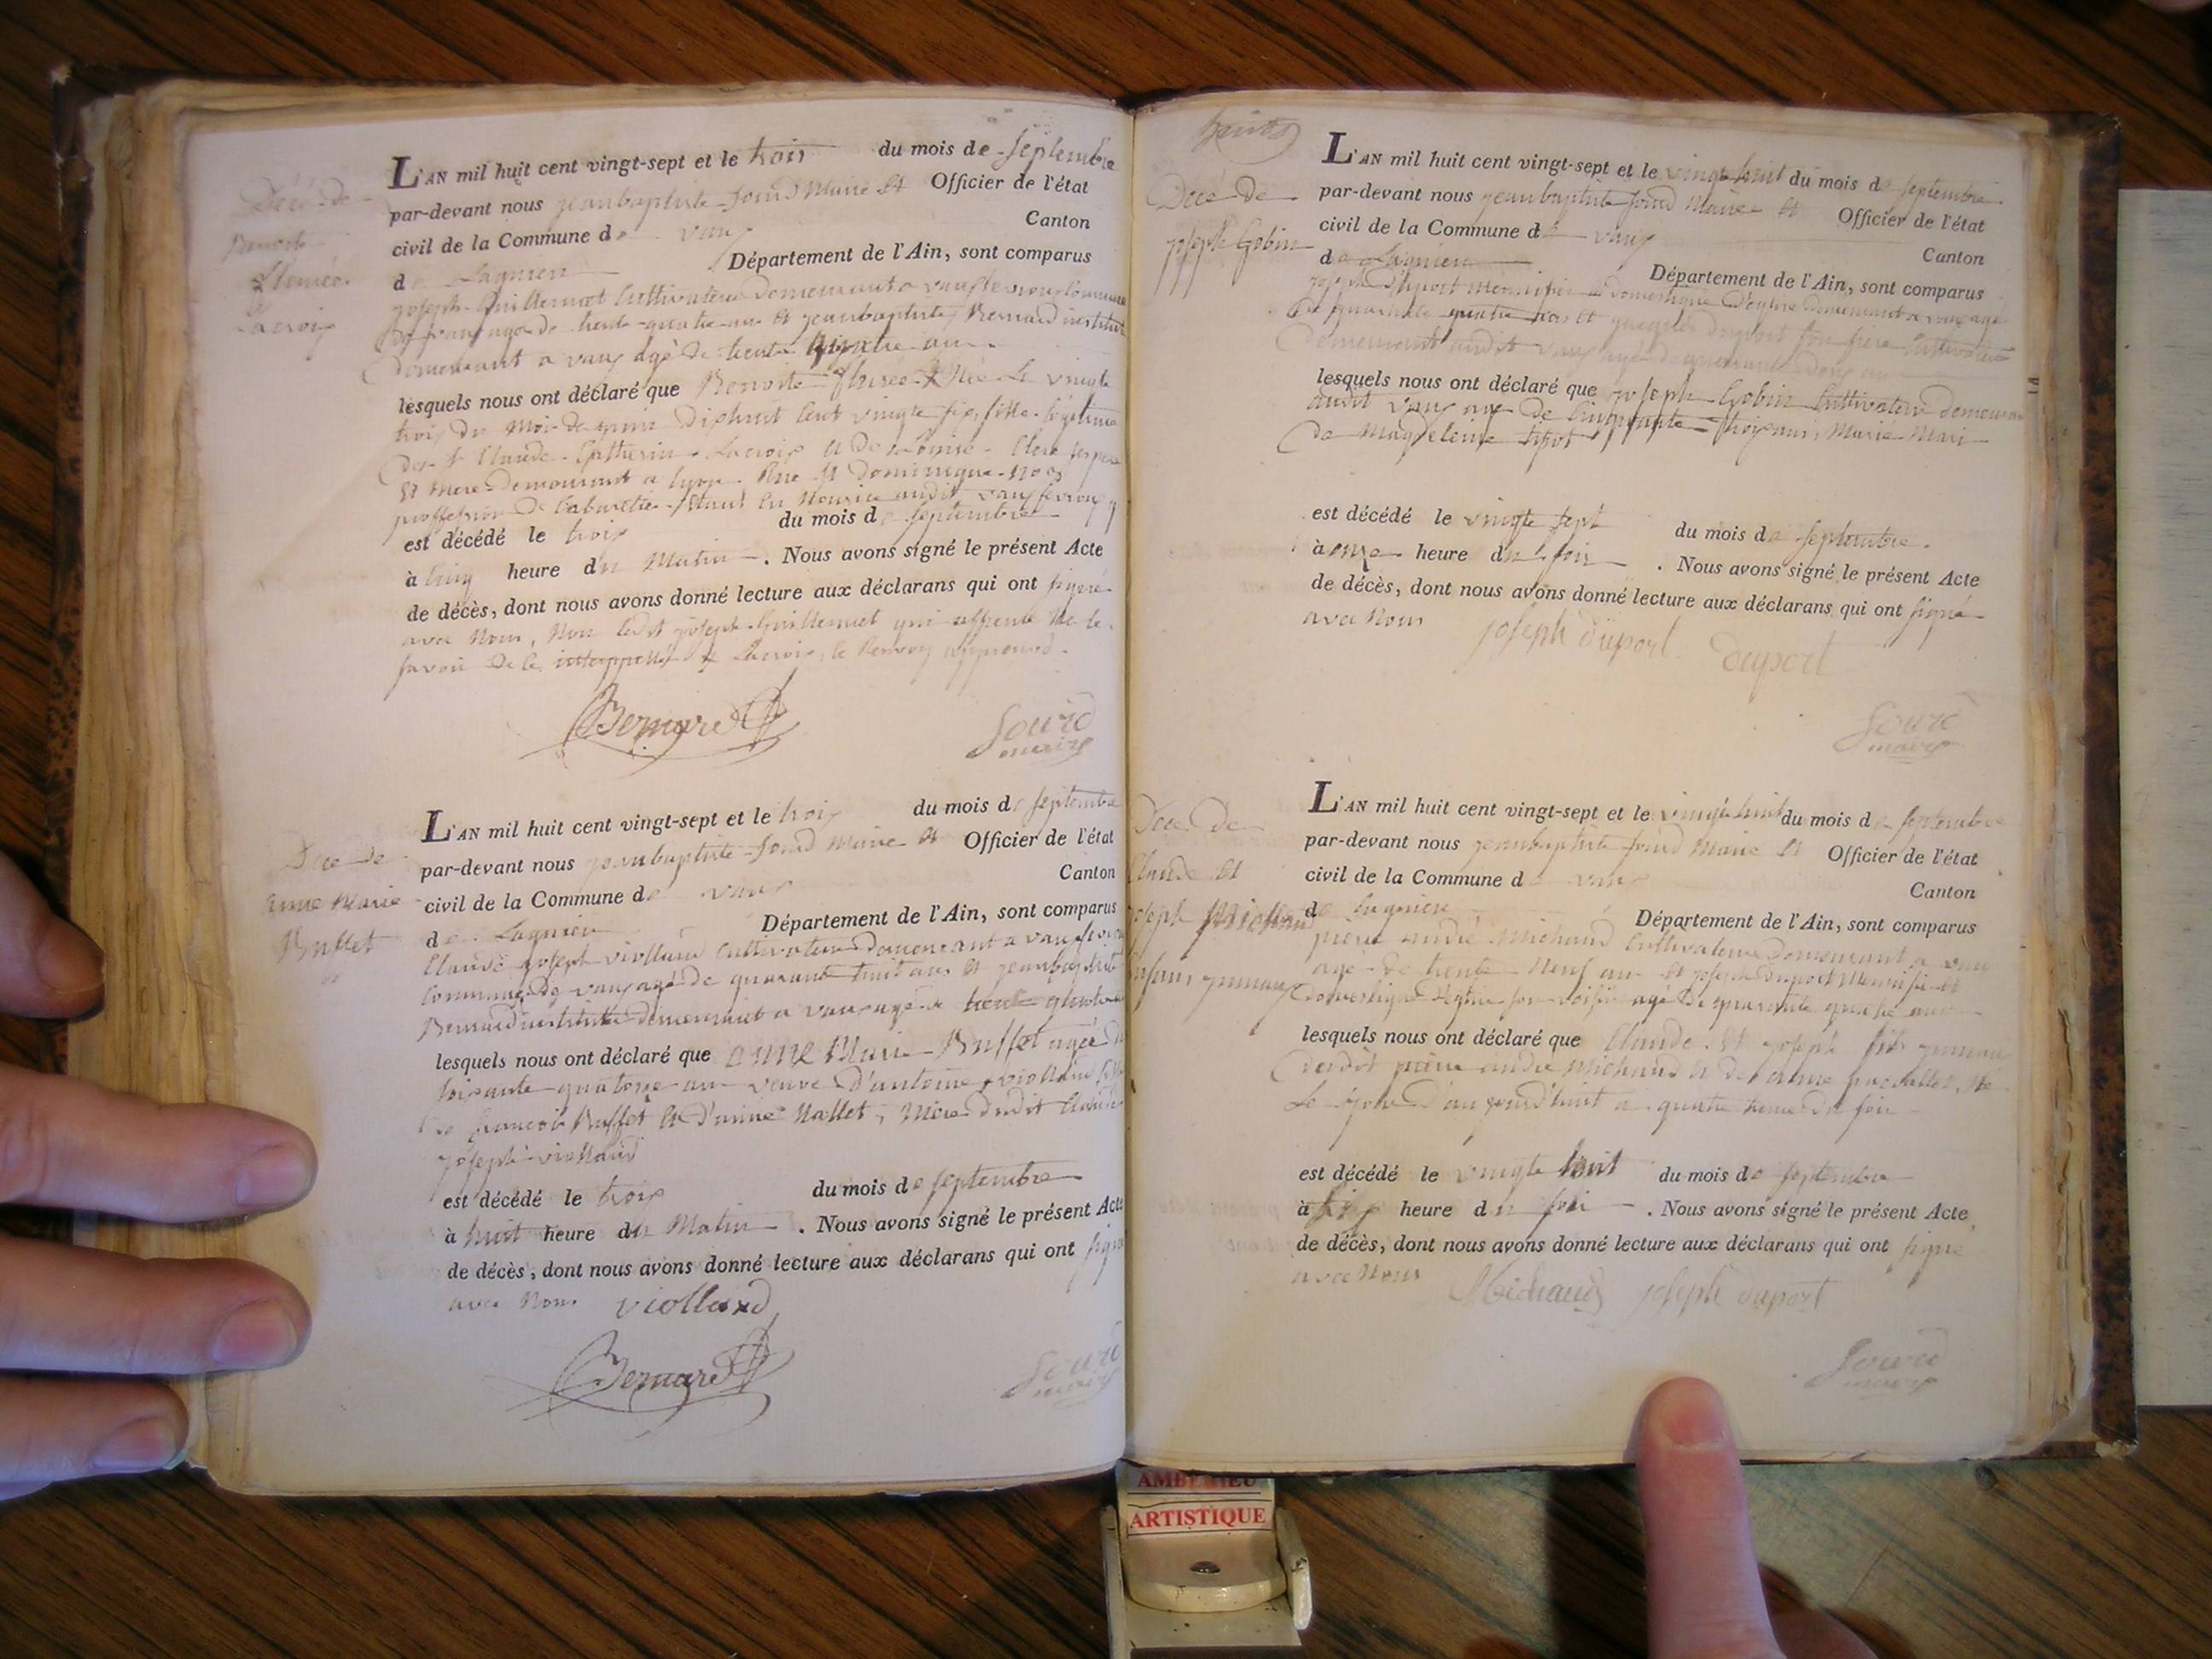 Décé de
Benoite
Lacroix
L'AN mil huit cent vingt-sept et le trois du mois de septembre
par-devant nous jeanbaptiste sourd Maire et Officier de l'état
civil de la Commune de vaux Canton
de Lagnieu Département de l'Ain, sont comparus
joseph Guillermet Cultivateur demeurant a
agé de trente quatre ans et jeanbaptiste Bernard institut
demeurant a vaux agé de trente quatre ans
lesquels nous ont déclaré que Benoite Née le vingte
trois du Mois de dixhuit Cent vingte six, fille légitime
de Claude Catherin Lacroix et de Louise
et Mere demeurant a Lyon Rue St Dominique No
proffession de Cabaretier Nourice audit vaux
est décédé le trois du mois de septembre
à cinq heure du Matin . Nous avons signé le présent Acte
de décès, dont nous avons donné lecture aux déclarans qui ont signé
avec Nous, Non ledit joseph Guillermet qui
savoir de ce Lacroix, le Renvoy approuvé
Bernard
Sourd
maire
Décé de
anne Marie
Buffet
L'AN mil huit cent vingt-sept et le trois du mois de septembre
par-devant nous jeanbaptiste sourd Maire et Officier de l'état
civil de la Commune de vaux Canton
de Lagnieu Département de l'Ain, sont comparus
Claude joseph violland Cultivateur demeurant a
Commune de vaux agé de quarante huit ans et jeanbaptiste
Bernard demeurant a vaux agé de trente quatre
lesquels nous ont déclaré que anne Marie Buffet agée de
soixante quatorze ans veuve d'antoine violland
de françois Buffet et d'anne Mallet, Mere dudit Claude
joseph violland
est décédé le trois du mois de septembre
à huit heure du Matin . Nous avons signé le présent Acte
de décès, dont nous avons donné lecture aux déclarans qui ont signé
avec Nous violland
Bernard
Sourd
maire
Décé de
joseph Gobin
L'AN mil huit cent vingt-sept et le vingt huit du mois de septembre
par-devant nous jeanbaptiste sourd Maire et Officier de l'état
civil de la Commune de vaux Canton
de Lagnieu Département de l'Ain, sont comparus
joseph Duport Menuisier domestique d'eglise demeurant a vaux agé
de quarante quatre ans et duport son frere Cultivateur
demeurant audit vaux agé de ans
lesquels nous ont déclaré que joseph Gobin Cultivateur demeurant
audit vaux agé de Cinquante trois ans, Marié Mari
de Magdeleine
est décédé le vingte sept du mois de septembre
à onze heure du soir . Nous avons signé le présent Acte
de décès, dont nous avons donné lecture aux déclarans qui ont signé
avec Nous joseph duport duport
Sourd
maire
Décé de
Claude et
joseph Michaud
enfans jumaux
L'AN mil huit cent vingt-sept et le vingt huit du mois de septembre
par-devant nous jeanbaptiste sourd Maire et Officier de l'état
civil de la Commune de vaux Canton
de Lagnieu Département de l'Ain, sont comparus
pierre andré Michaud Cultivateur demeurant a vaux
agé de trente Neuf ans et joseph duport Menuisier et
domestique d'eglise son voisin agé de quarante quatre ans
lesquels nous ont déclaré que Claude et joseph fils jumaux
dudit pierre andré Michaud et de anne Né
Le jour d'aujourd'huit a quatre heure du soir
est décédé le vingte huit du mois de septembre
à six heure du soir . Nous avons signé le présent Acte
de décès, dont nous avons donné lecture aux déclarans qui ont signé
avec Nous Michaud joseph duport
Sourd
maire
AMBERIEU
ARTISTIQUE